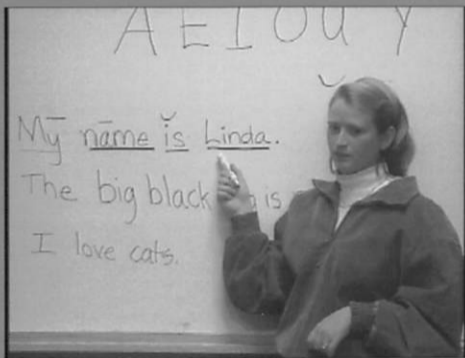 A E I O U Y
My name is Linda.
The big black is
I love cats.